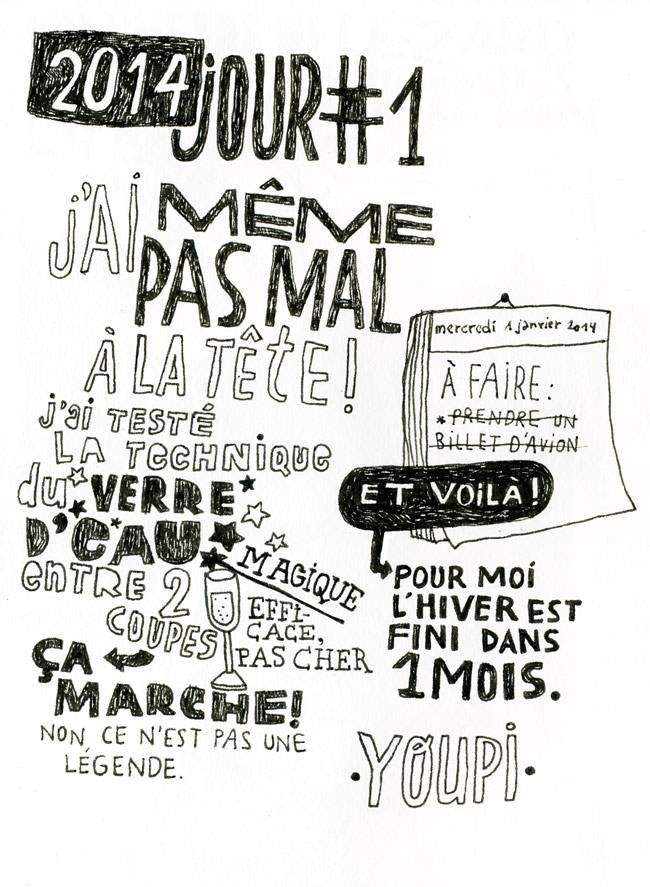 2014 JOUR #1
J'AI MÊME
PAS MAL
À LA TÊTE !
j'ai TESTÉ
LA TECHNIQUE
du VERRE
D'EAU
ENTRE 2
COUPES
MAGIQUE
EFFI-
CACE,
PAS CHER
ÇA
MARCHE!
NON, CE N'EST PAS UNE
LÉGENDE.
mercredi 1 janvier 2014
À FAIRE :
* PRENDRE UN
BILLET D'AVION
ET VOILÀ !
POUR MOI
L'HIVER EST
FINI DANS
1 MOIS.
• YOUPI •